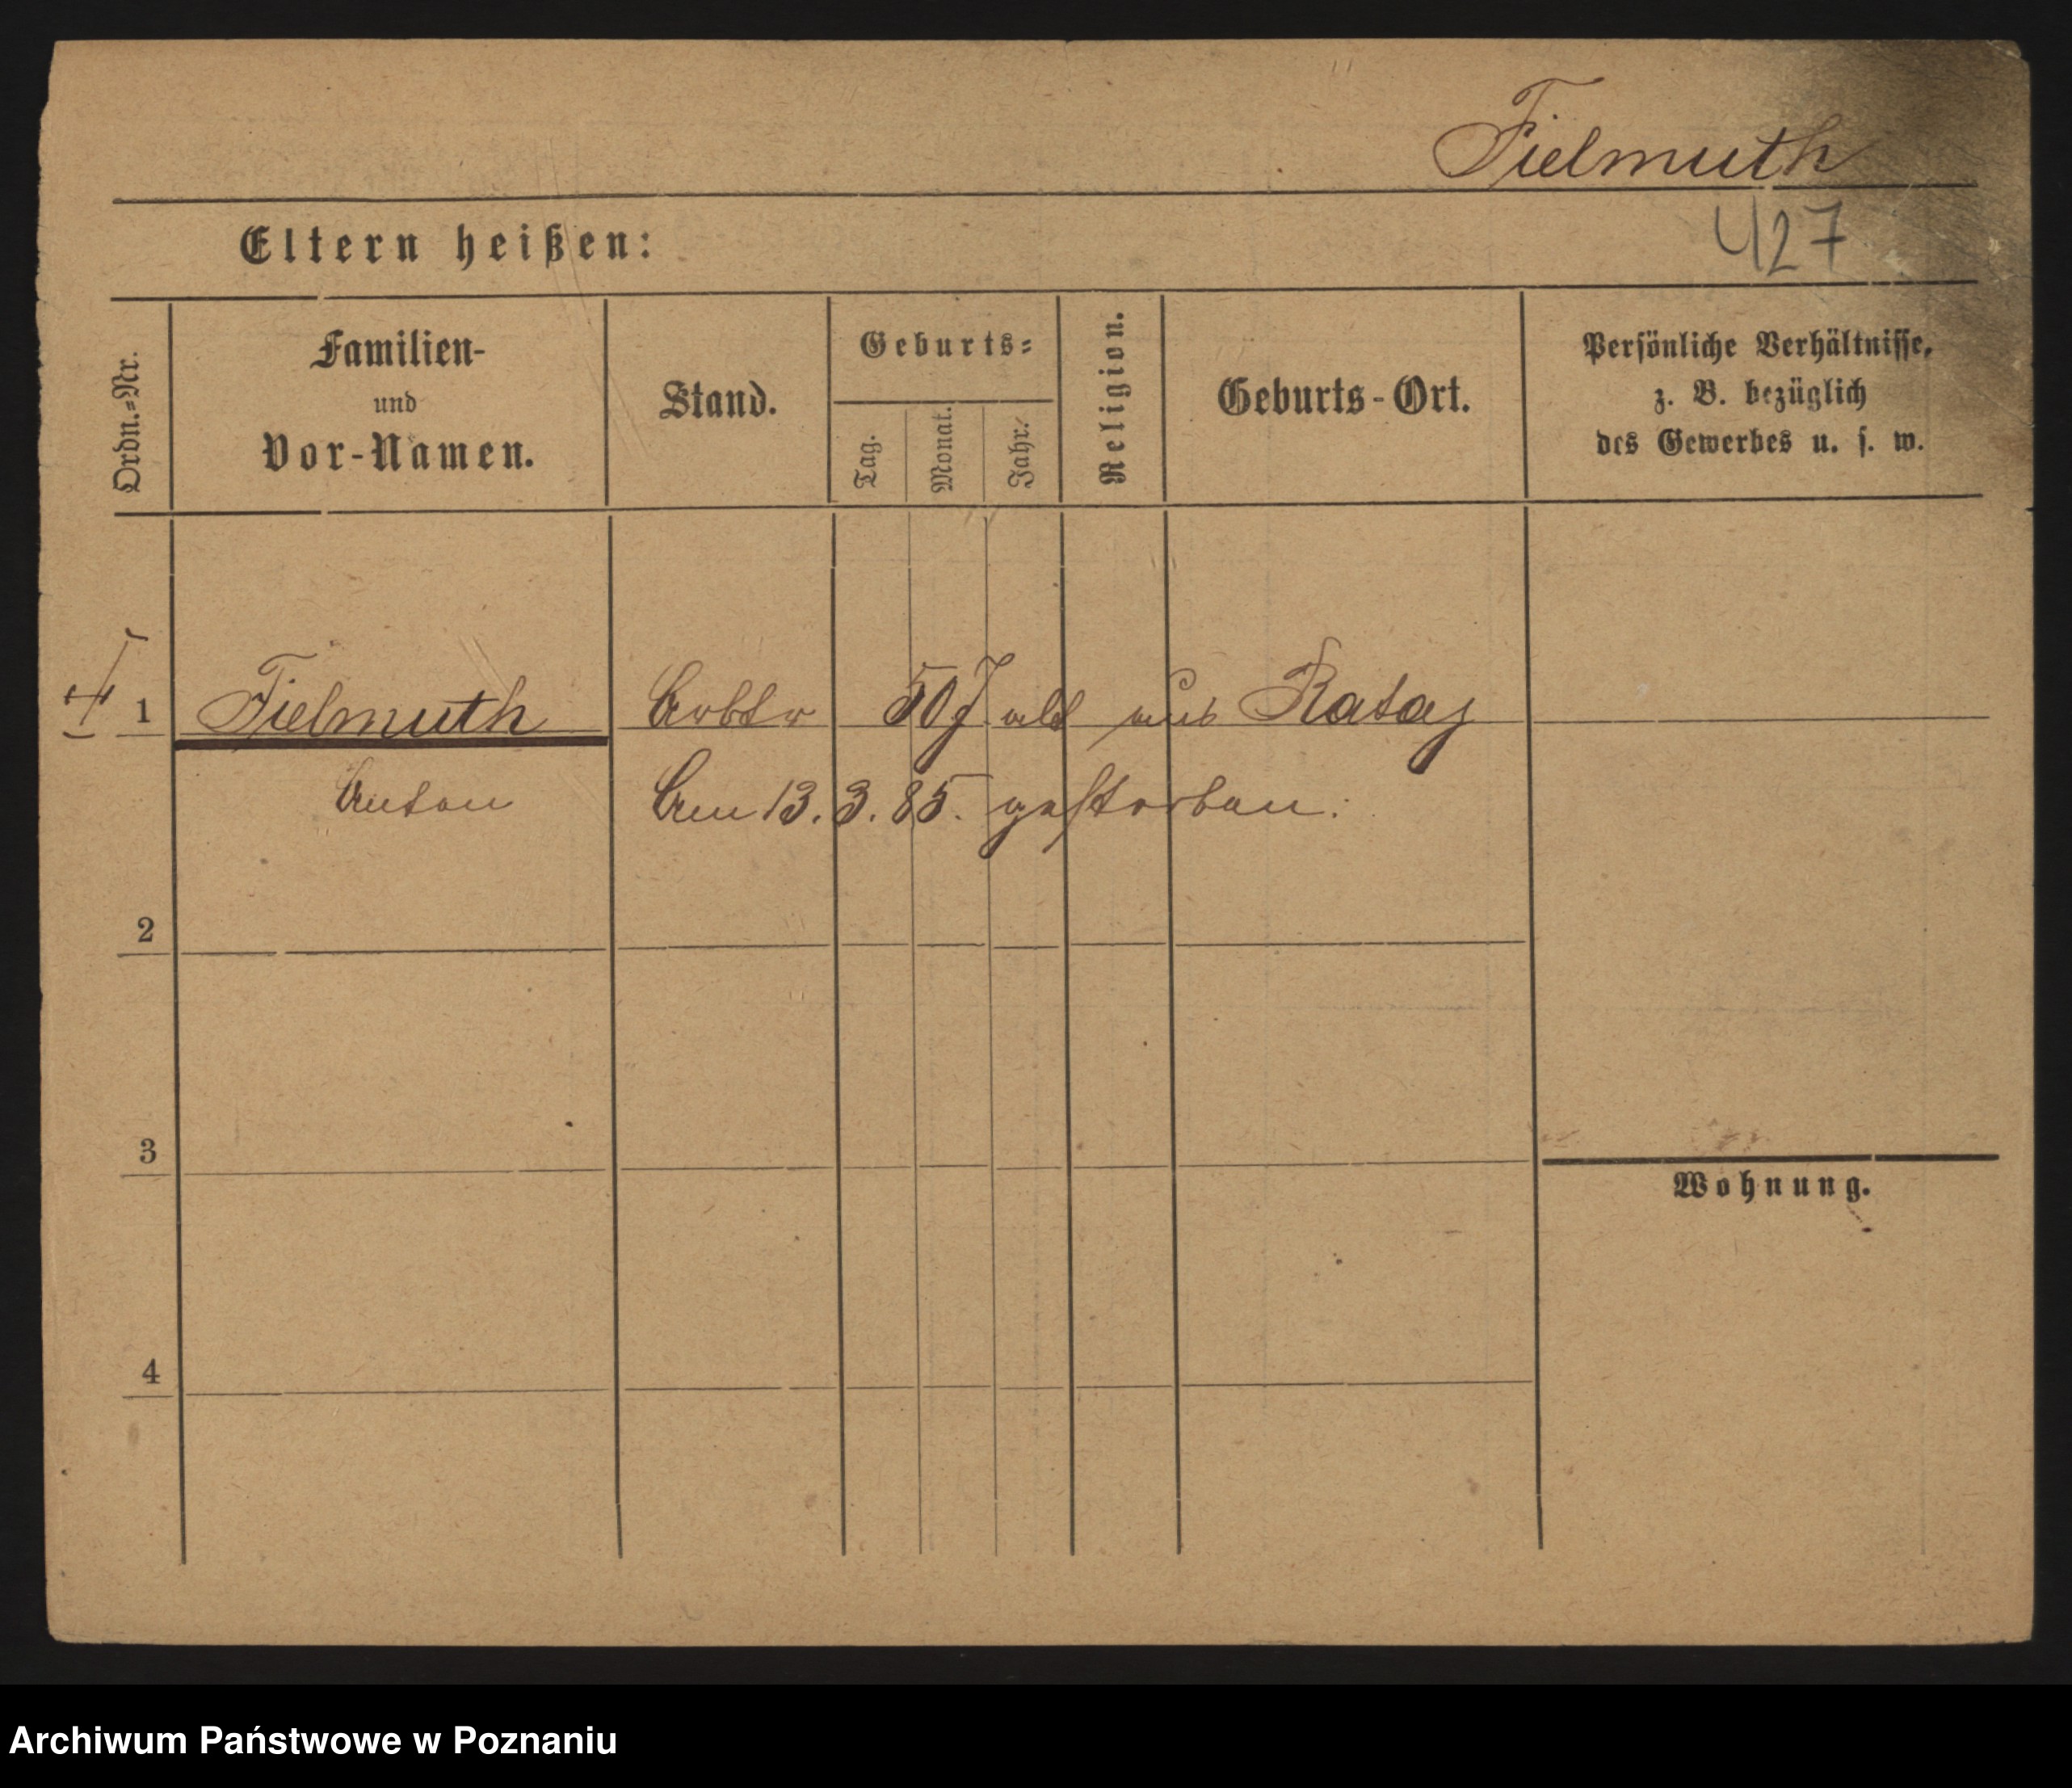 Fielmuth
Eltern heißen:
427
Ordn.=Nr.
Familien-
und
Vor-Namen.
Stand.
Geburts=
Tag.
Monat.
Jahr.
Religion.
Geburts-Ort.
Persönliche Verhältnisse,
z. B. bezüglich
des Gewerbes u. s. w.
1 Fielmuth Arbtr 50 J alt aus Rataj
Anton Am 13. 3. 85. gestorben.
2
3
Wohnung.
4
Archiwum Państwowe w Poznaniu